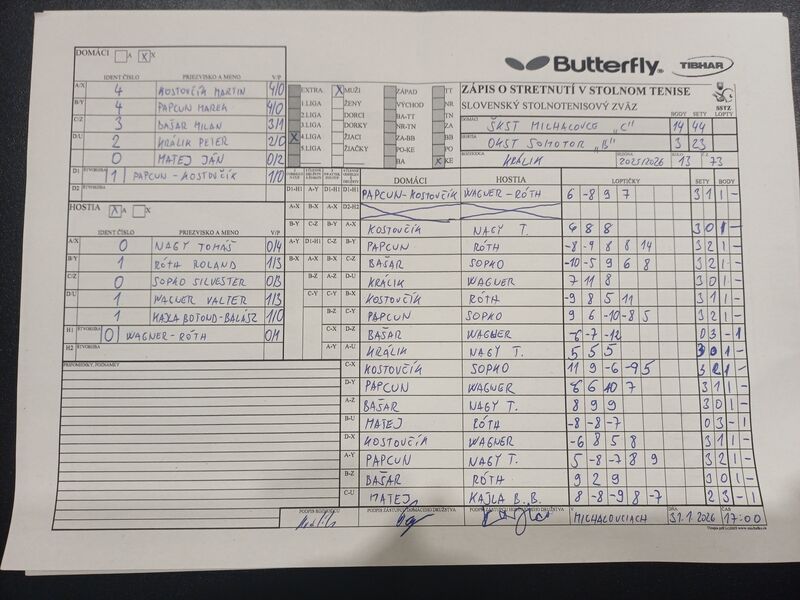 DOMÁCI A X
IDENT ČÍSLO PRIEZVISKO A MENO V/P
A/X 4 KOSTOVČÍK MARTIN 4/0
B/Y 4 PAPCUN MAREK 4/0
C/Z 3 BAŠAR MILAN 3/1
D/U 2 KRÁLIK PETER 2/0
0 MATEJ JÁN 0/2
D1 ŠTVORHRA 1 PAPCUN - KOSTOVČÍK 1/0
D2
HOSTIA A X
IDENT ČÍSLO PRIEZVISKO A MENO V/P
A/X 0 NAGY TOMÁŠ 0/4
B/Y 1 RÓTH ROLAND 1/3
C/Z 0 SOPKO SILVESTER 0/3
D/U 1 WAGNER VALTER 1/3
1 KAJLA BOTOND-BALÁSZ 1/0
H1 ŠTVORHRA 0 WAGNER - RÓTH 0/1
H2 ŠTVORHRA
PRIPOMIENKY, POZNÁMKY
Butterfly TIBHAR
EXTRA X MUŽI ZÁPAD TT
1.LIGA ŽENY VÝCHOD NR
2.LIGA DORCI BA-TT TN
3.LIGA DORKY NR-TN ZA
X 4.LIGA ŽIACI ZA-BB BB
5.LIGA ŽIAČKY PO-KE PO
BA X KE
ZÁPIS O STRETNUTÍ V STOLNOM TENISE
SLOVENSKÝ STOLNOTENISOVÝ ZVÄZ
SSTZ
BODY SETY LOPTY
DOMÁCI ŠKST MICHALOVCE "C" 14 44
HOSTIA OKST SOMOTOR "B" 3 23
ROZHODCA KRÁLIK SEZÓNA 2025/2026 KOLO 13 č 73
DOMÁCI HOSTIA LOPTIČKY SETY BODY
D1-H1 A-Y D1-H1 D1-H1 PAPCUN-KOSTOVČÍK WAGNER-RÓTH 6 -8 9 7 3 1 1 -
A-X B-X A-X D2-H2
B-Y C-Z B-Y A-X KOSTOVČÍK NAGY T. 6 8 8 3 0 1 -
A-Y D1-H1 C-Z B-Y PAPCUN RÓTH -8 -9 8 8 14 3 2 1 -
B-X A-X B-X C-Z BAŠAR SOPKO -10 -5 9 6 8 3 2 1 -
B-Z A-Z D-U KRÁLIK WAGNER 7 11 8 3 0 1 -
C-Y C-Y B-X KOSTOVČÍK RÓTH -9 8 5 11 3 1 1 -
B-Z C-Y PAPCUN SOPKO 9 6 -10 -8 5 3 2 1 -
C-X D-Z BAŠAR WAGNER -6 -7 -12 0 3 - 1
A-Y A-U KRÁLIK NAGY T. 5 5 5 3 0 1 -
C-X KOSTOVČÍK SOPKO 11 9 -6 -9 5 3 2 1 -
D-Y PAPCUN WAGNER -6 6 10 7 3 1 1 -
A-Z BAŠAR NAGY T. 8 9 9 3 0 1 -
B-U MATEJ RÓTH -8 -8 -7 0 3 - 1
D-X KOSTOVČÍK WAGNER -6 8 5 8 3 1 1 -
A-Y PAPCUN NAGY T. 5 -8 -7 8 9 3 2 1 -
B-Z BAŠAR RÓTH 9 2 9 3 0 1 -
C-U MATEJ KAJLA B.B. 8 -8 -9 8 -7 2 3 - 1
PODPIS ROZHODCU PODPIS ZÁSTUPCU DOMÁCEHO DRUŽSTVA PODPIS ZÁSTUPCU HOSTÍ DRUŽSTVA V MICHALOVCIACH DŇA 31.1.2026 ČAS 17:00